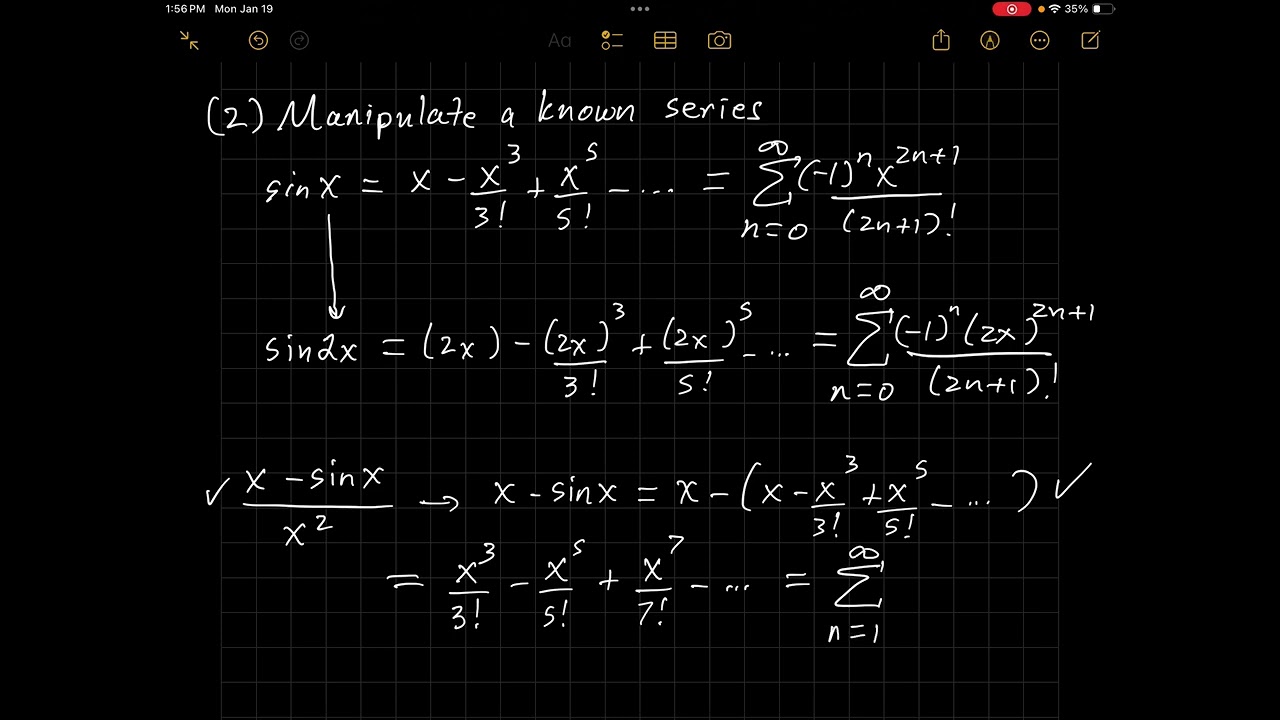 1:56 PM Mon Jan 19 35%
Aa
(2) Manipulate a known series
sin x = x - x^3/3! + x^5/5! - ... = ∑_{n=0}^{∞} (-1)^n x^{2n+1}/(2n+1)!
sin 2x = (2x) - (2x)^3/3! + (2x)^5/5! - ... = ∑_{n=0}^{∞} (-1)^n (2x)^{2n+1}/(2n+1)!
✓ (x - sin x)/x^2 → x - sin x = x - (x - x^3/3! + x^5/5! - ... ) ✓
= x^3/3! - x^5/5! + x^7/7! - ... = ∑_{n=1}^{∞}